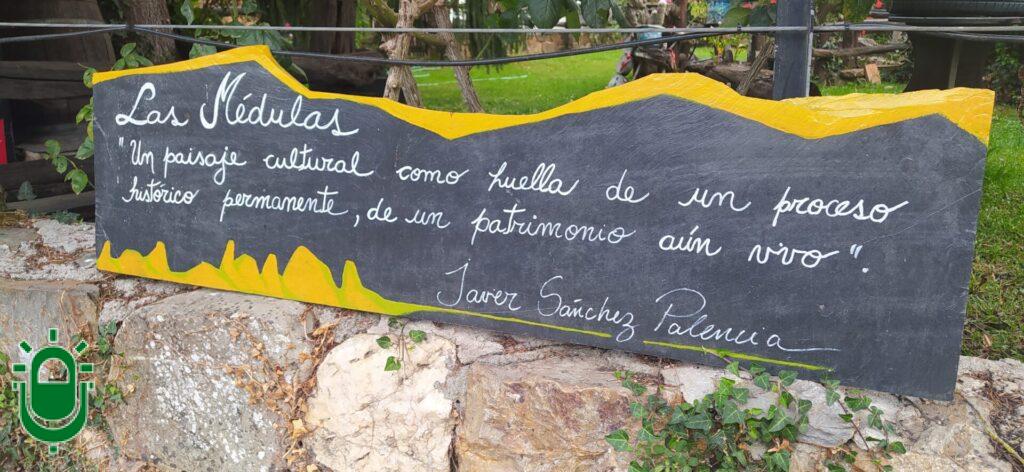 Las Médulas
"Un paisaje cultural como huella de un proceso
histórico permanente, de un patrimonio aún vivo".
Javer Sánchez Palencia